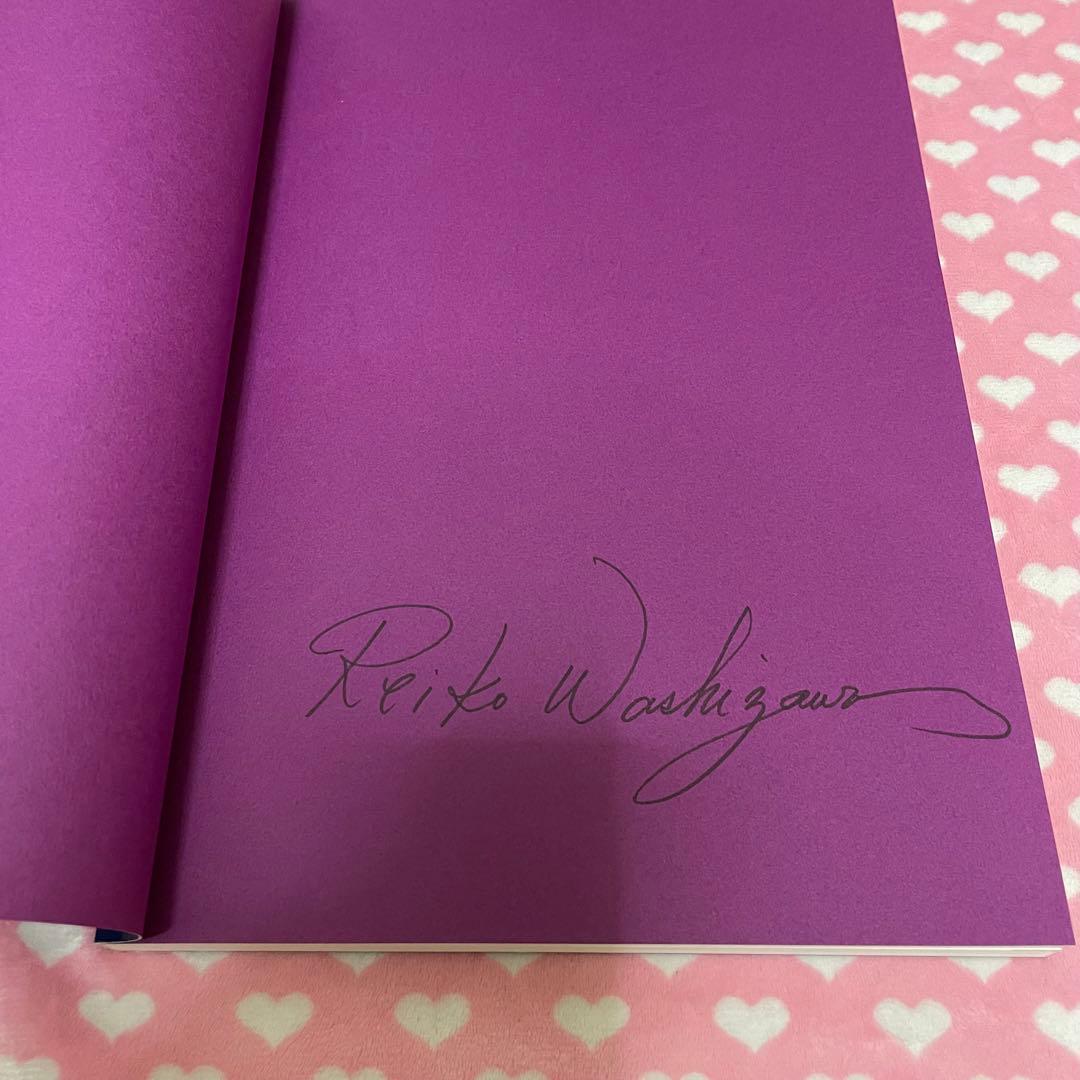 Reiko Washizawa